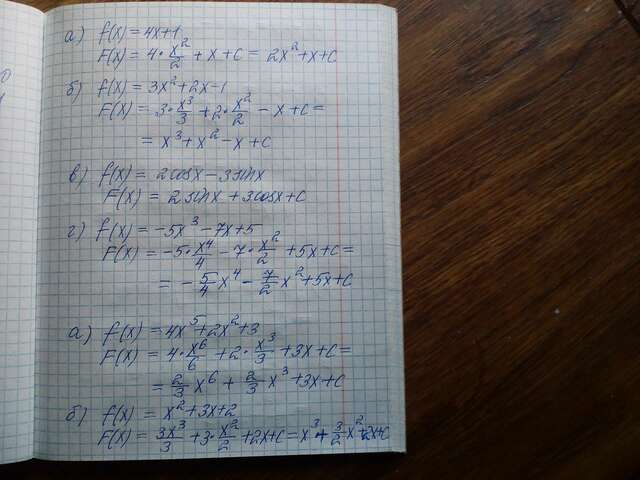 а) f(x) = 4x+1
F(x) = 4·x²/2 + x + c = 2x²+x+c
б) f(x) = 3x²+2x-1
F(x) = 3·x³/3 + 2·x²/2 - x + c =
= x³+x²-x+c
в) f(x) = 2cosx - 3sinx
F(x) = 2sinx + 3cosx + c
г) f(x) = -5x³-7x+5
F(x) = -5·x⁴/4 - 7·x²/2 + 5x+c =
= -5/4 x⁴ - 7/2 x²+5x+c
а) f(x) = 4x⁵+2x²+3
F(x) = 4·x⁶/6 + 2·x³/3 + 3x+c =
= 2/3 x⁶ + 2/3 x³+3x+c
б) f(x) = x²+3x+2
F(x) = 3x³/3 + 3·x²/2 + 2x+c = x³+3/2 x²+2x+c